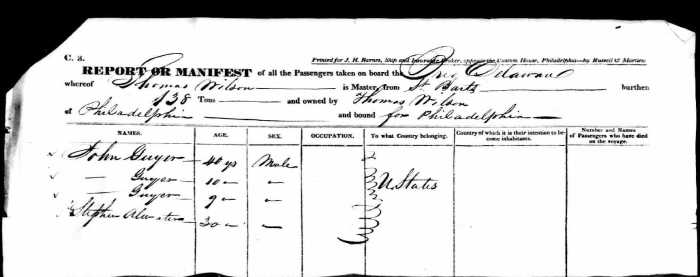 C. 3. Printed for J. H. Barnes, Ship and Insurance Broker, opposite the Custom House, Philadelphia—by Russell & Martien.
REPORT OR MANIFEST of all the Passengers taken on board the Brig Delaware
whereof Thomas Wilson is Master from St Barts burthen
138 Tons and owned by Thomas Wilson
of Philadelphia and bound for Philadelphia
NAMES. AGE. SEX. OCCUPATION. To what Country belonging. Country of which it is their intention to become inhabitants. Number and Names of Passengers who have died on the voyage.
John Guyer 40 ys Male
— Guyer 10 — — U States
— Guyer 9 — —
Stephen 30 — —